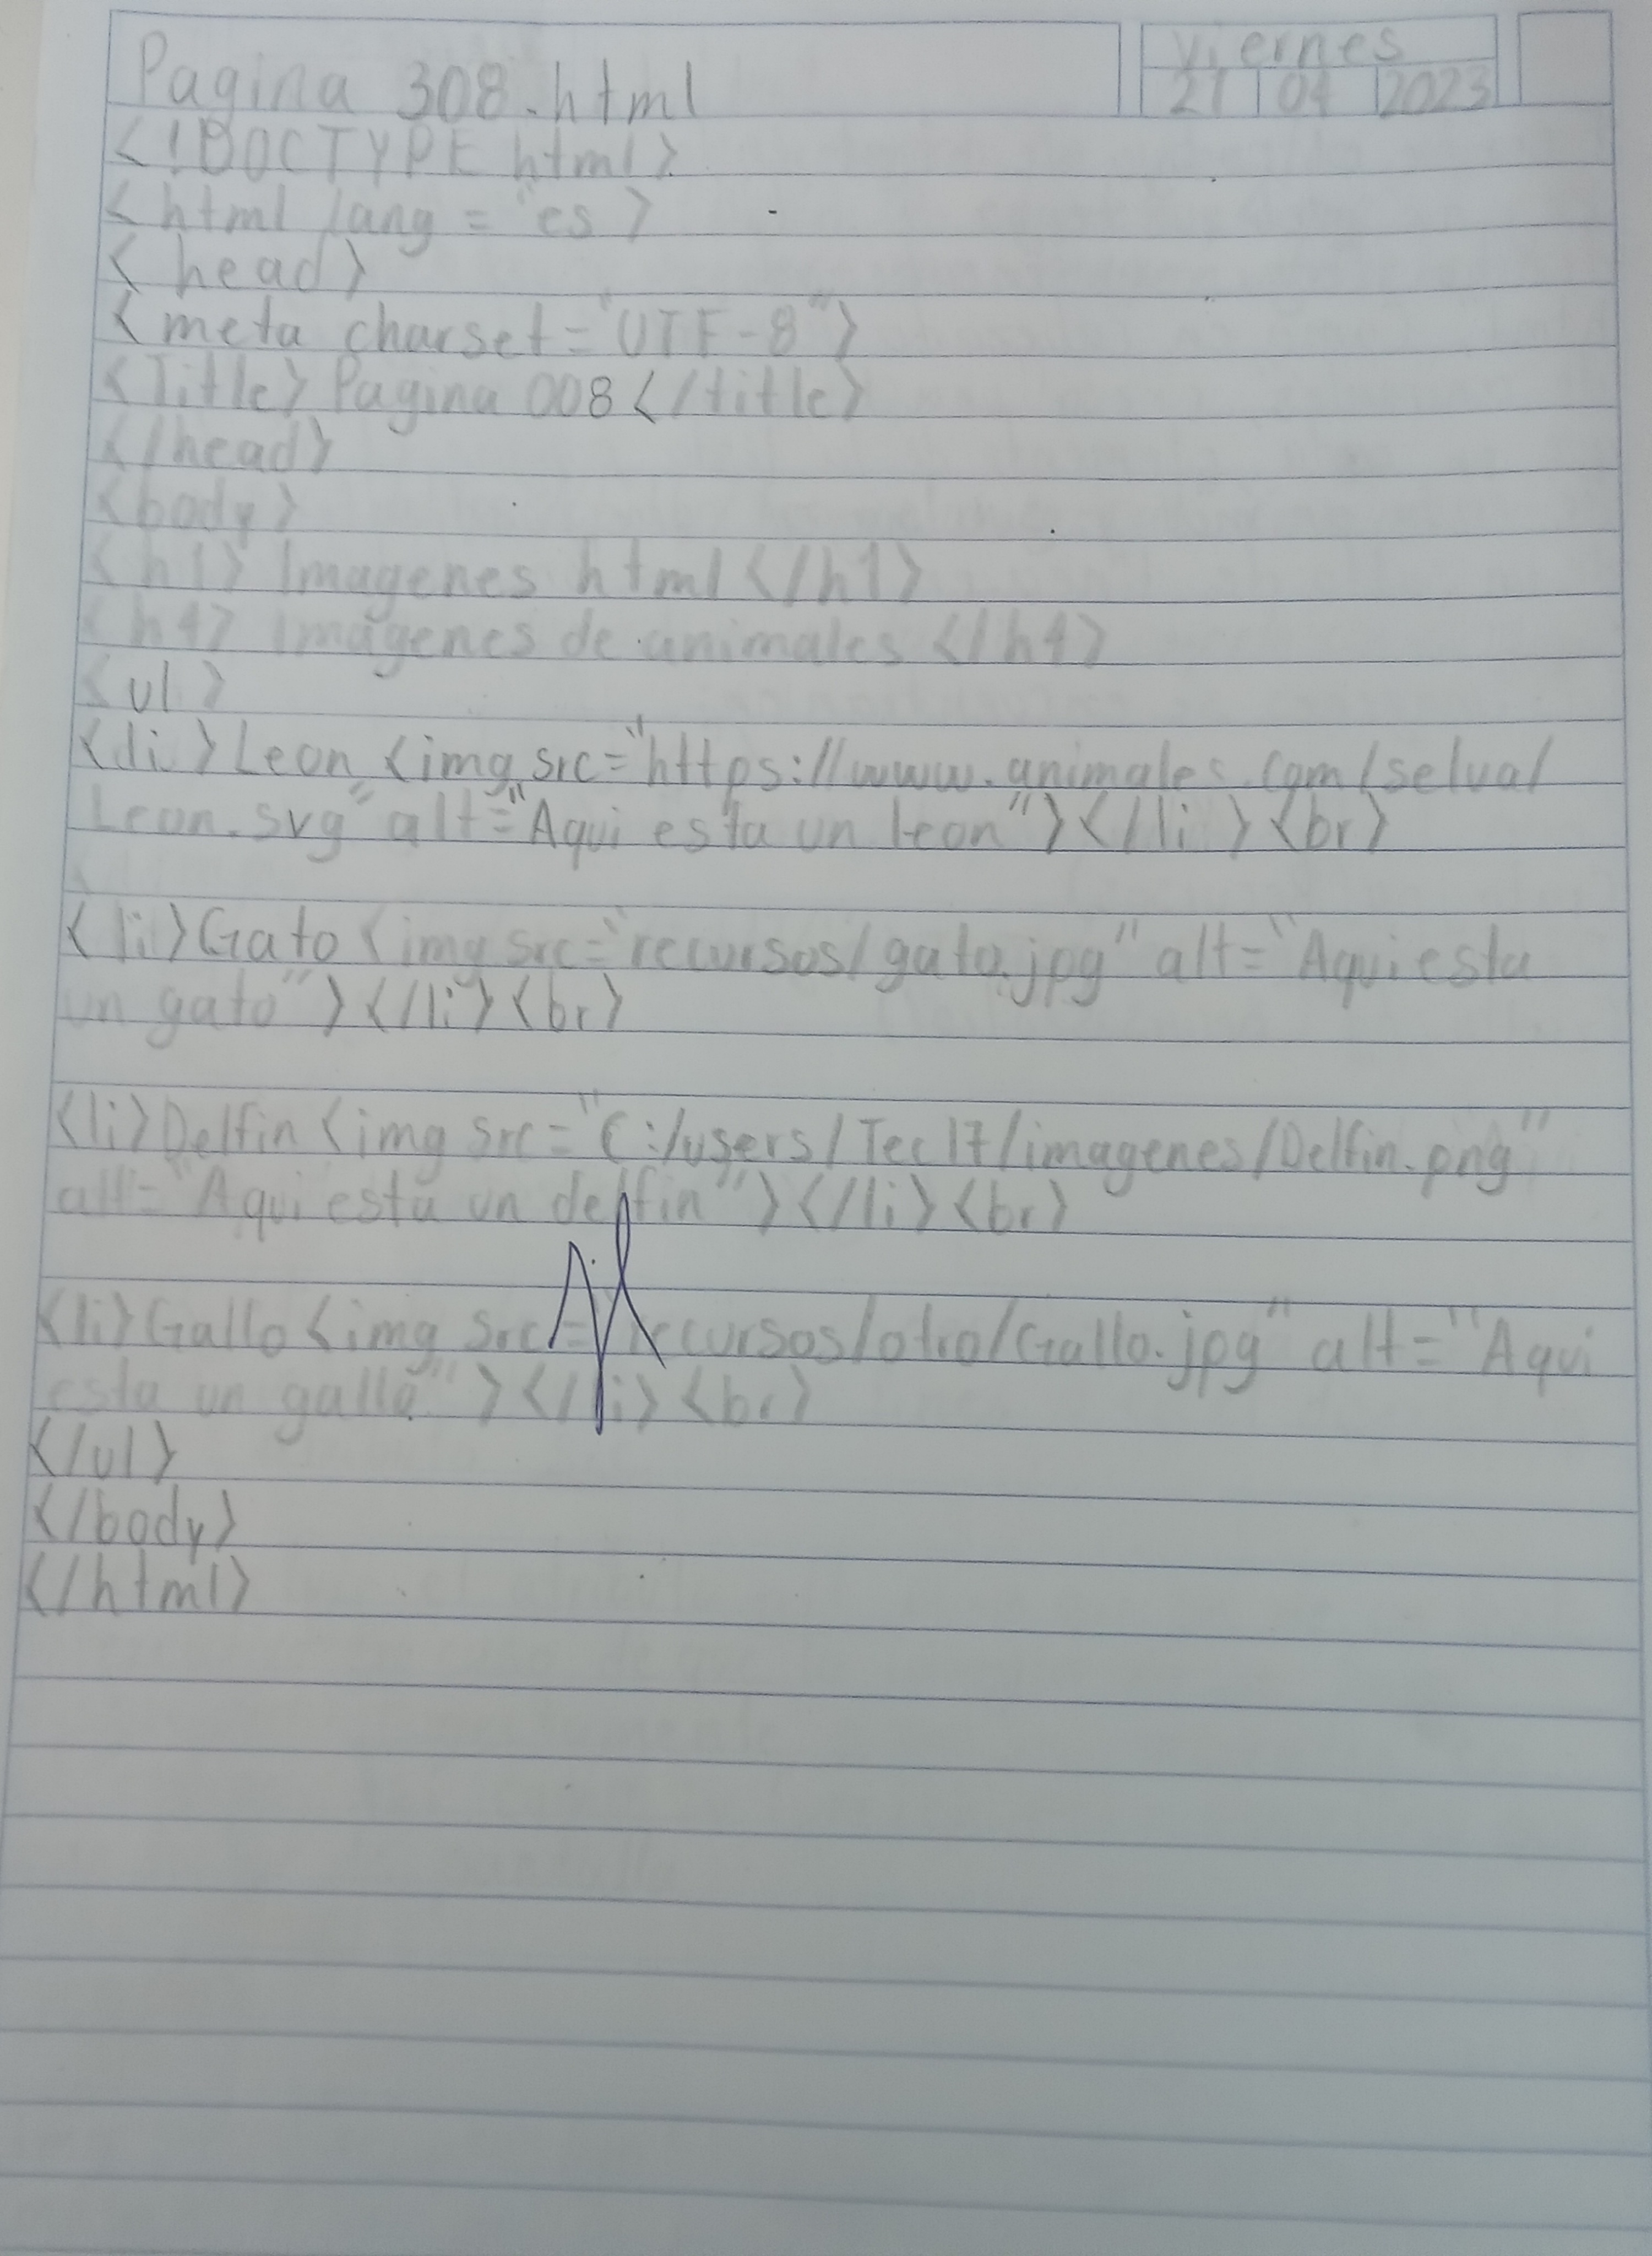 Pagina 308.html
viernes
21 04 2023
<!DOCTYPE html>
<html lang = "es >
< head>
<meta charset="UTF-8">
<Title> Pagina 008 </title>
</head>
<body>
<h1> Imagenes html </h1>
<h4> Imagenes de animales </h4>
<ul>
<li> Leon <img src="https://www.animales.com/selva/
Leon.svg" alt="Aqui esta un leon"></li><br>
<li>Gato <img src="recursos/gato.jpg" alt="Aqui esta
un gato"></li><br>
<li>Delfin <img src="C:/users/Tec17/imagenes/Delfin.png"
alt="Aqui esta un delfin"></li><br>
<li>Gallo <img src="recursos/otro/Gallo.jpg" alt="Aqui
esta un gallo"></li><br>
</ul>
</body>
</html>